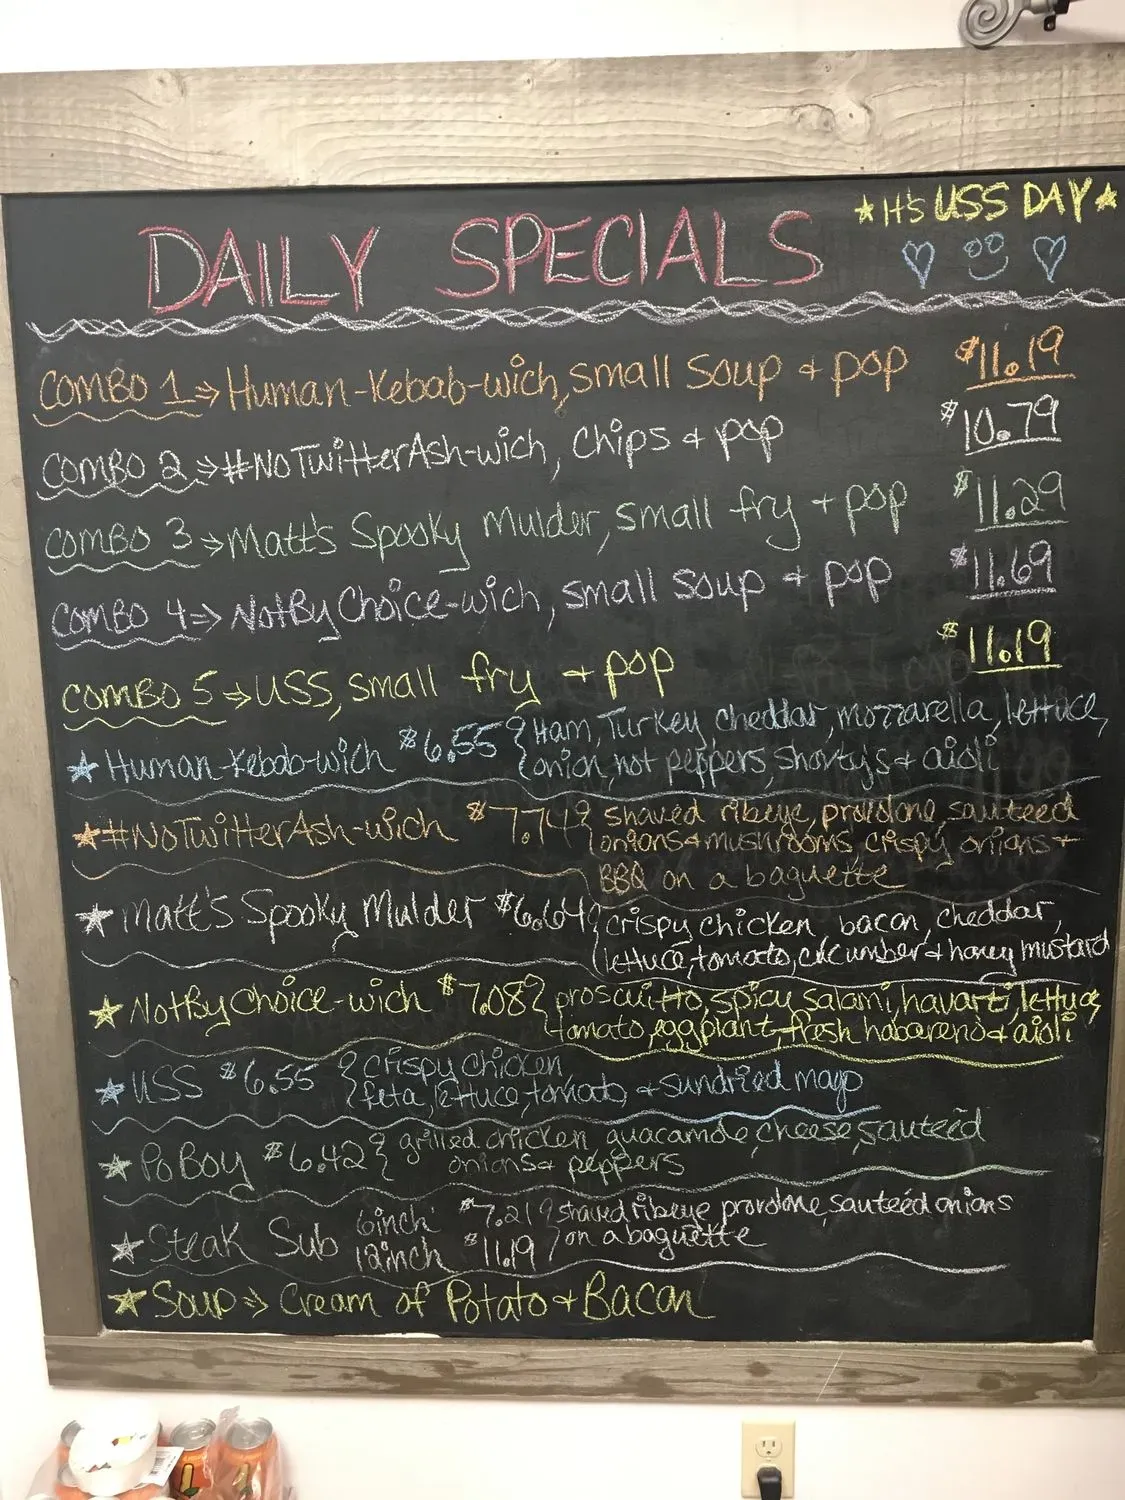 ★ It's USS DAY ★
DAILY SPECIALS
COMBO 1 → Human-Kebab-wich, small soup + pop $11.19
COMBO 2 → #NoTwitterAsh-wich, chips + pop $10.79
COMBO 3 → Matt's Spooky Mulder, small fry + pop $11.29
COMBO 4 → NotByChoice-wich, small soup + pop $11.69
COMBO 5 → USS, small fry + pop $11.19
★ Human-Kebab-wich $6.55 { Ham, Turkey cheddar, mozzarella, lettuce,
onion, hot peppers, shorty's + aioli
★ #NoTwitterAsh-wich $7.74 { shaved ribeye, provolone, sauteed
onions + mushrooms, crispy onions +
BBQ on a baguette
★ Matt's Spooky Mulder $6.64 { crispy chicken bacon, cheddar,
lettuce, tomato, cucumber + honey mustard
★ NotByChoice-wich $7.08 { proscuitto, spicy salami, havarti, lettuce,
tomato, eggplant, fresh habareno + aioli
★ USS $6.55 { crispy chicken
feta, lettuce, tomato, + sundried mayo
★ PoBoy $6.42 { grilled chicken, guacamole, cheese, sauteed
onions + peppers
★ Steak Sub 6inch $7.21 { shaved ribeye provolone, sauteed onions
12inch $11.19 on a baguette
★ Soup → Cream of Potato + Bacon